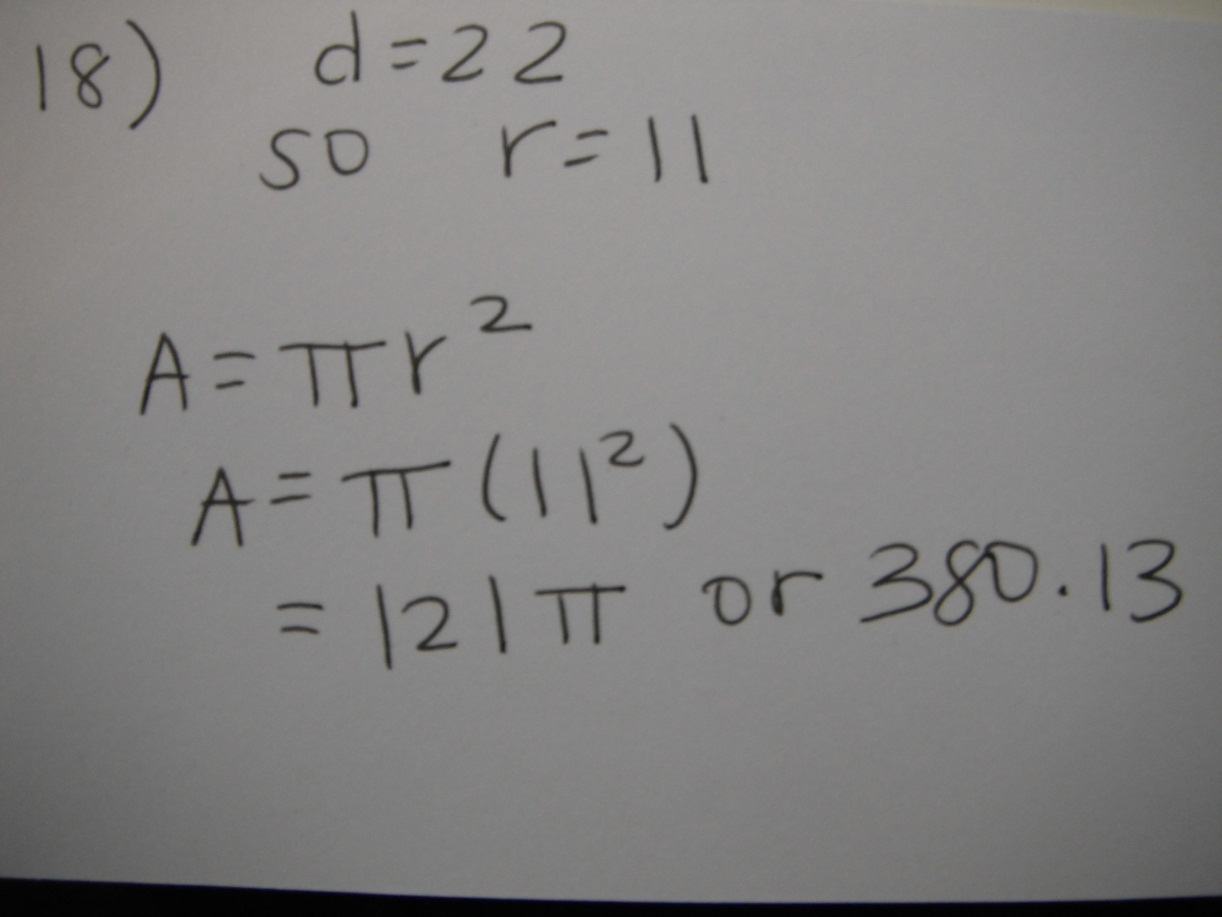 18) d=22
so r=11
A=πr²
A=π(11²)
=121π or 380.13